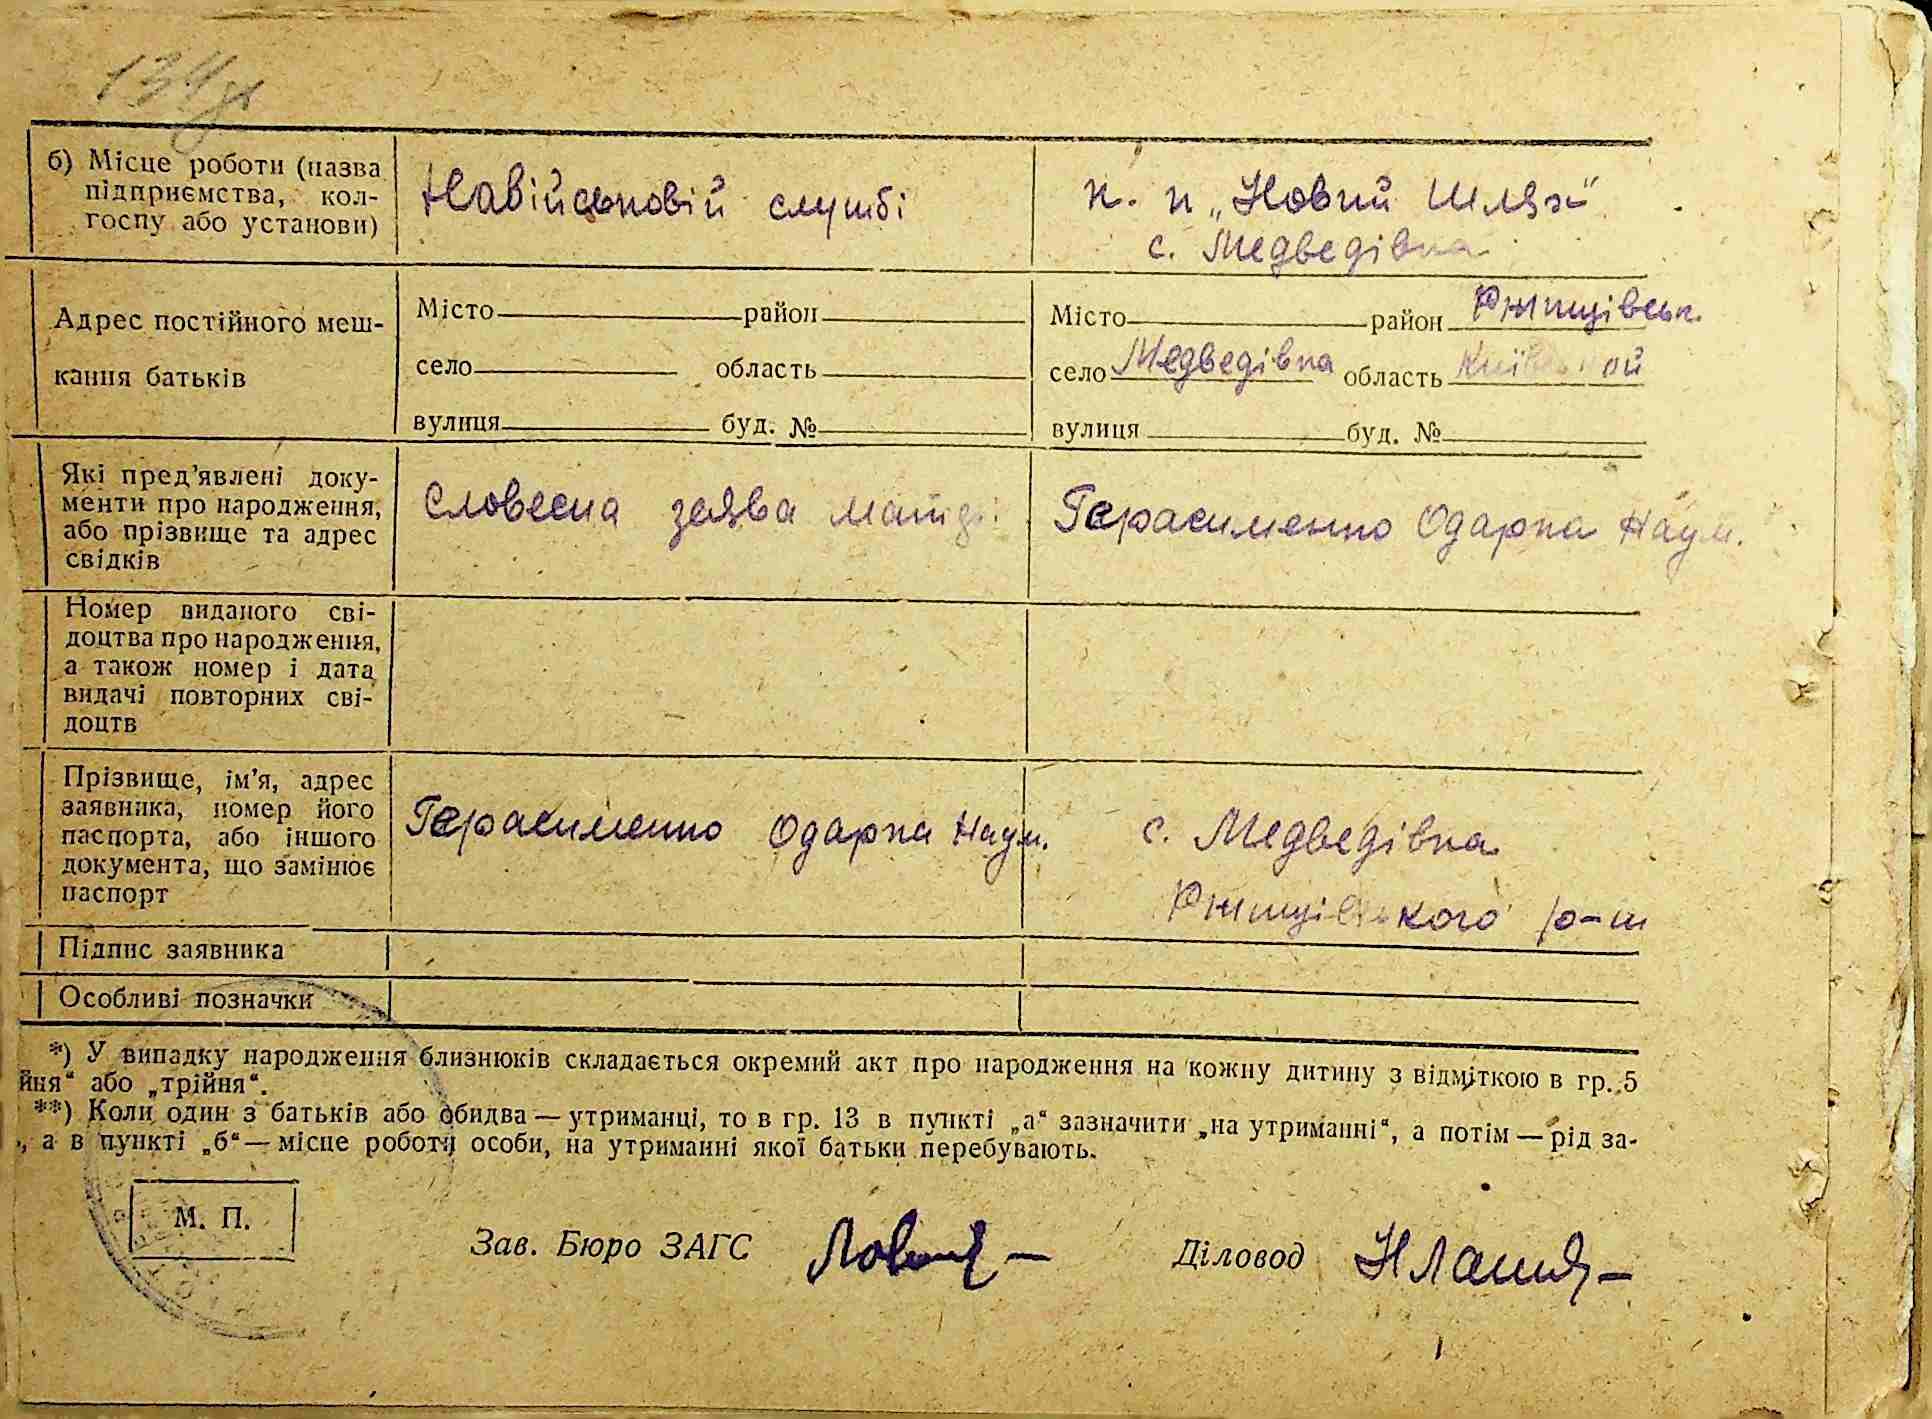 134
б) Місце роботи (назва підприємства, колгоспу або установи)
Навійськовій службі
к. п „Новий Шлях"
с. Медведівка
Адрес постійного мешкання батьків
Місто район
село область
вулиця буд. №
Місто район Ржищівськ.
село Медведівка область Київської
вулиця буд. №
Які пред'явлені документи про народження, або прізвище та адрес свідків
Словесна заява матері
Герасименко Одарка Наум.
Номер виданого свідоцтва про народження, а також номер і дата видачі повторних свідоцтв
Прізвище, ім'я, адрес заявника, номер його паспорта, або іншого документа, що замінює паспорт
Герасименко Одарка Наум.
с. Медведівка
Ржищівського р-ш
Підпис заявника
Особливі позначки
*) У випадку народження близнюків складається окремий акт про народження на кожну дитину з відміткою в гр. 5
йня" або „трійня".
**) Коли один з батьків або обидва — утриманці, то в гр. 13 в пункті „а" зазначити „на утриманні", а потім — рід за-
, а в пункті „б" — місце роботи особи, на утриманні якої батьки перебувають.
М. П.
Зав. Бюро ЗАГС
Діловод